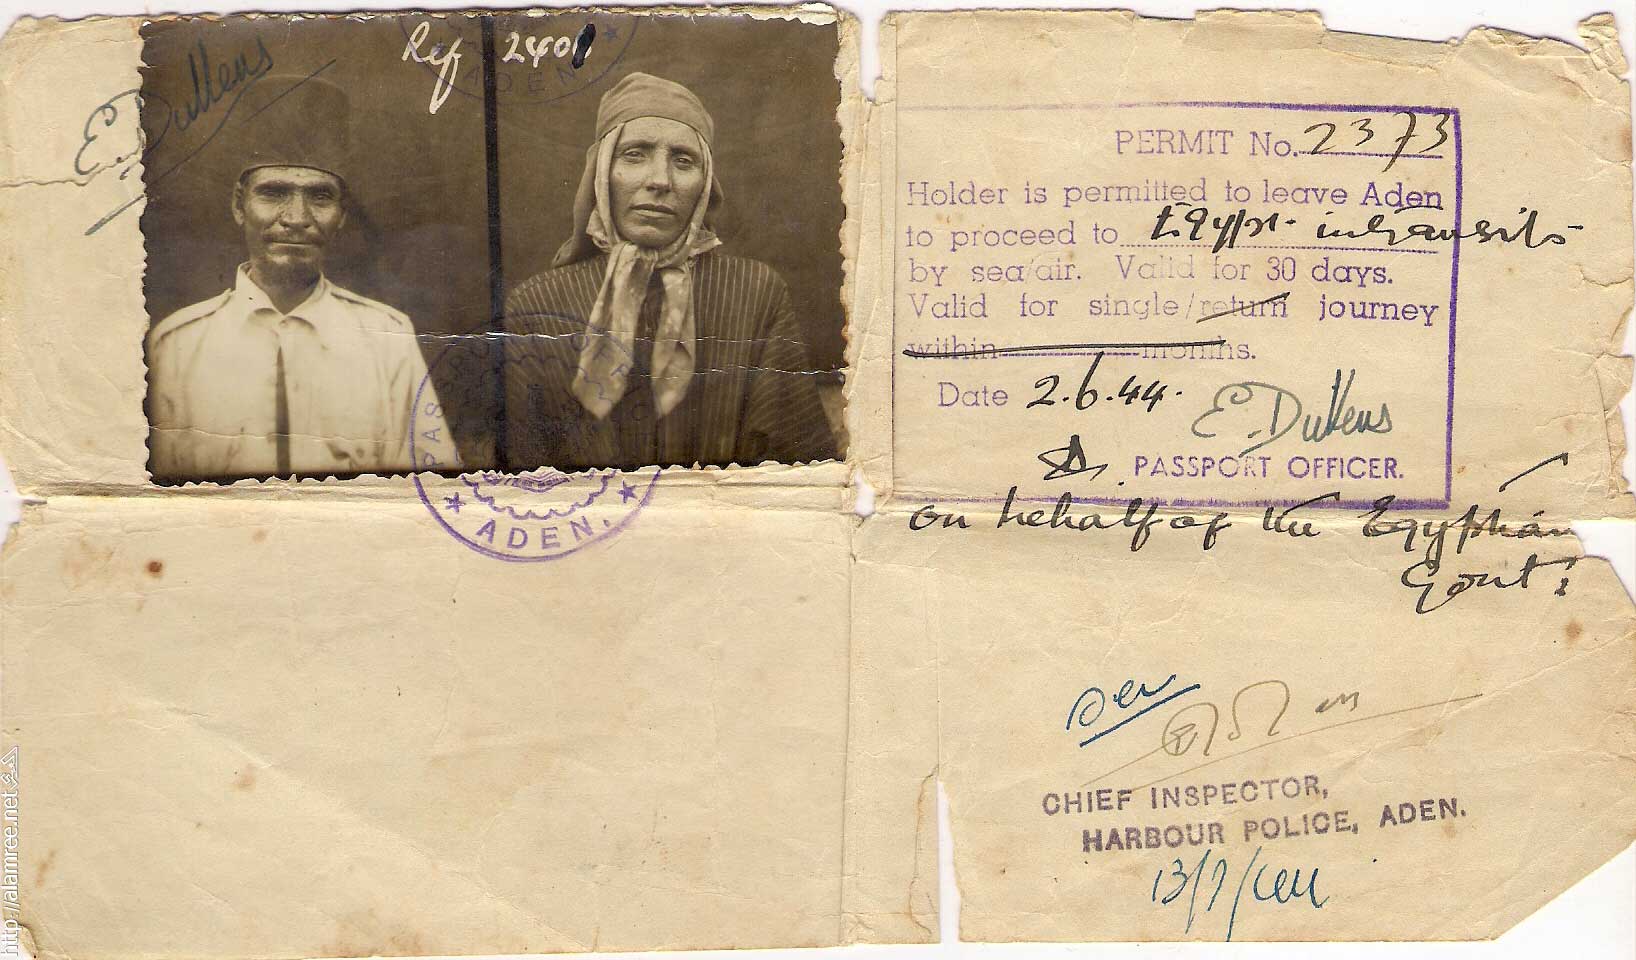 E. Dullens
Ref 2401
ADEN
PASSPORT OFFICE
ADEN.
PERMIT No. 2373
Holder is permitted to leave Aden
to proceed to Egypt in transit
by sea/air. Valid for 30 days.
Valid for single/return journey
within months.
Date 2.6.44.
E. Dullens
PASSPORT OFFICER.
on behalf of the Egyptian
Govt:
CHIEF INSPECTOR,
HARBOUR POLICE, ADEN.
13/7/44
http://alamree.net